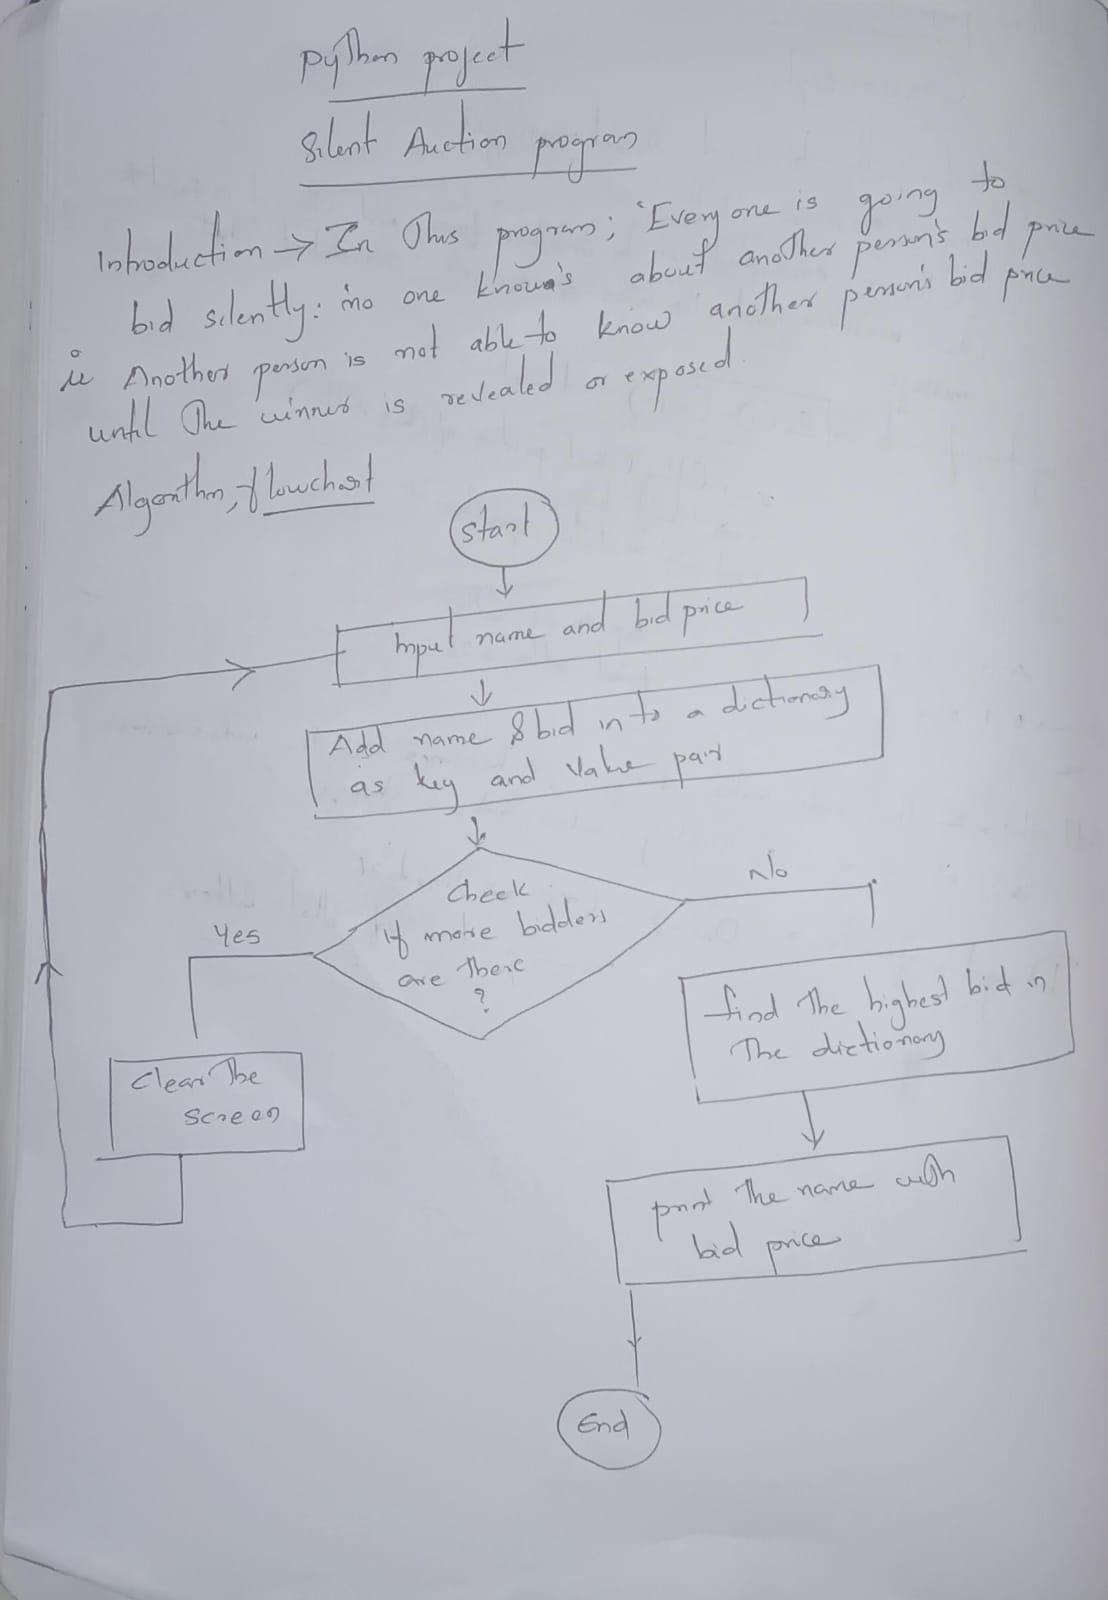 Python project
Silent Auction program
Introduction → In This program; 'Everyone is going to
bid silently: no one knows's about another person's bid price
ie Another person is not able to know another person's bid price
until The winner is revealed or exposed.
Algorithm, flowchart
Start
Input name and bid price
Add name & bid in to a dictionary
as key and Value pair
Check
if more bidders
are There
?
Yes
No
Clear The
Screen
find The highest bid in
The dictionary
print The name with
bid price
End